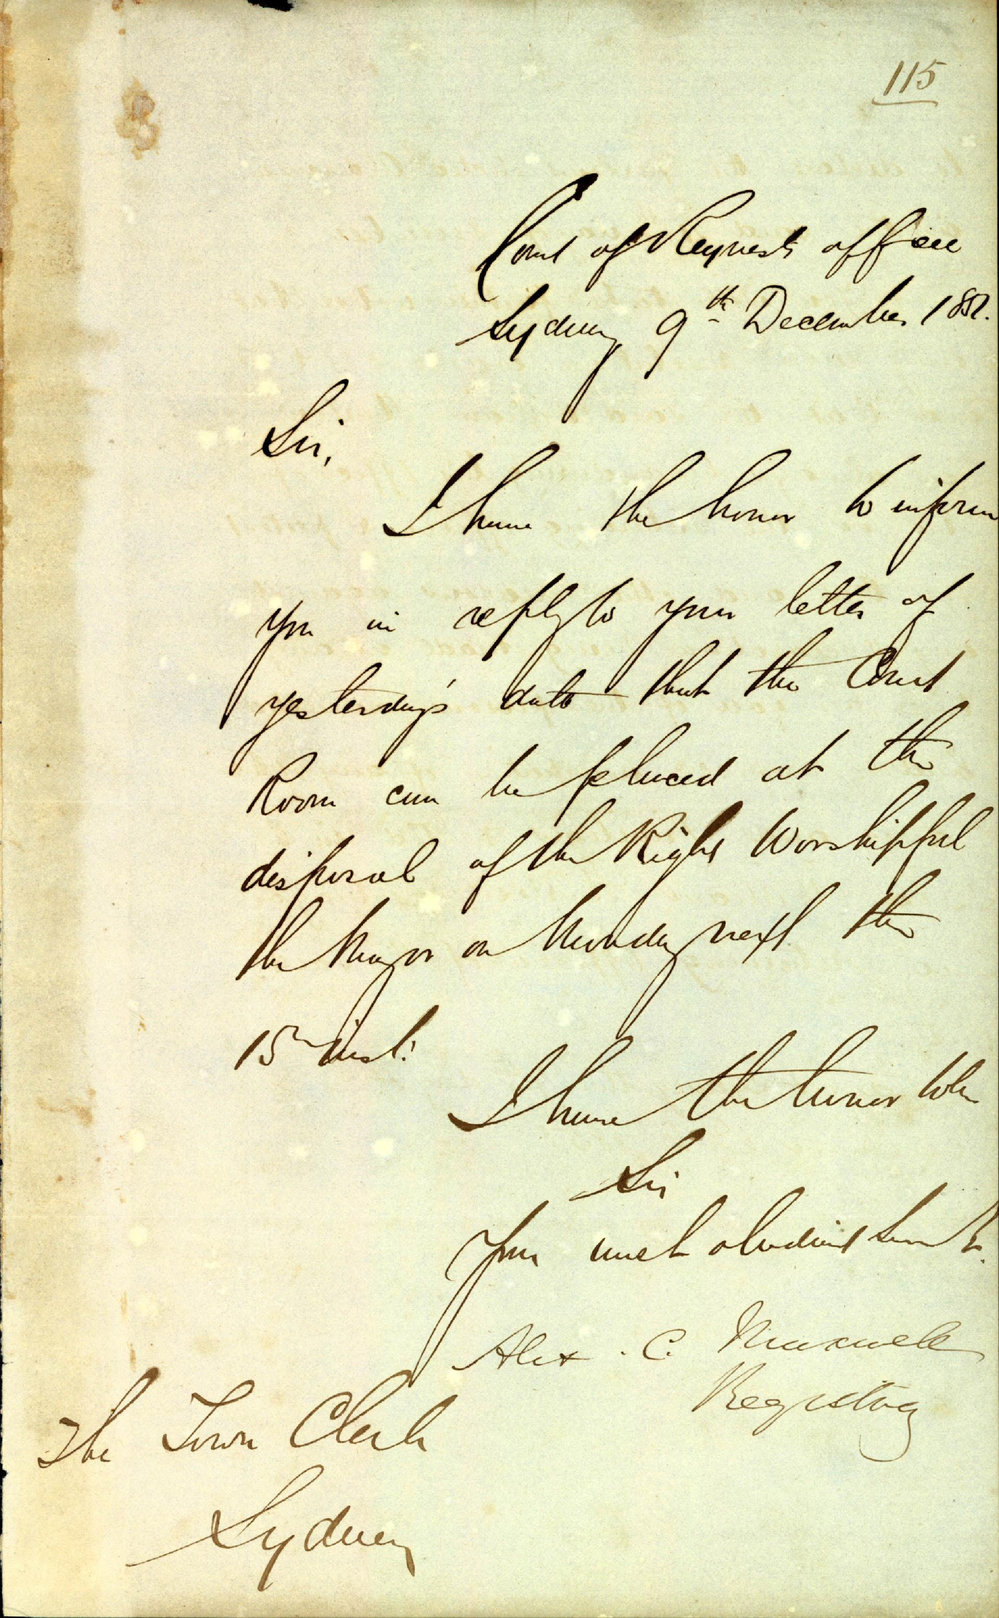 115
Court of Requests office
Sydney 9th December 1851.
Sir,
I have the honor to inform
you in reply to your letter of
yesterday's date that the Court
Room can be placed at the
disposal of the Right Worshipful
the Mayor on Monday next the
15th inst:
I have the honor to be
Sir
Your most obedient Servt.
Alex. C. Maxwell
Registrar
The Town Clerk
Sydney